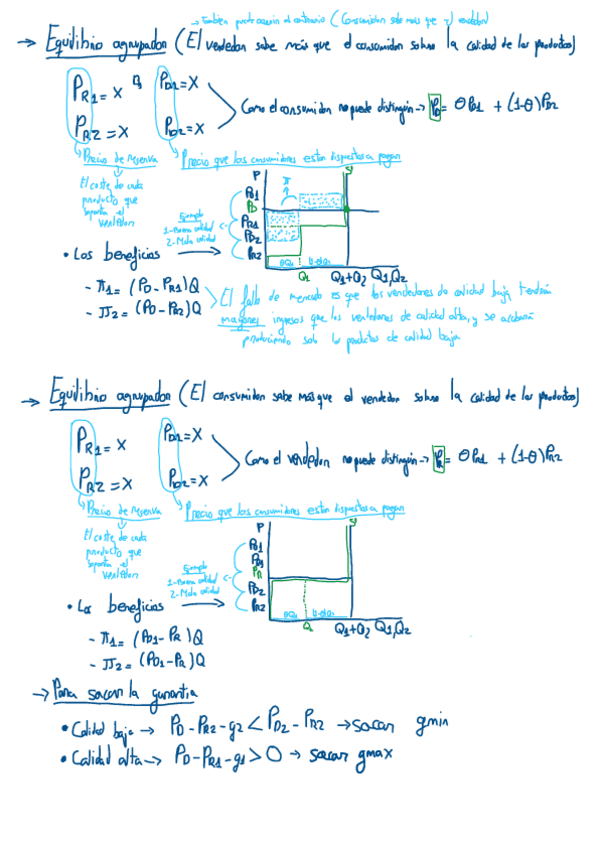 → También puede ocurrir al contrario (Consumidor sabe más que el vendedor)
→ Equilibrio agrupador (El vendedor sabe más que el consumidor sobre la calidad de los productos)
PR1 = X PD1 = X
PR2 = X PD2 = X
Como el consumidor no puede distinguir → PD = θPD1 + (1-θ)PD2
Precio de reserva
Precio que los consumidores estan dispuestos a pagar
El coste de cada
producto que
soporta el
vendedor
Ejemplo
1-Buena calidad
2-Mala calidad
P
PD1
PD
PR1
PD2
PR2
π
Q1
Q1+Q2 Q1,Q2
• Los beneficios →
- π1 = (PD - PR1)Q
- π2 = (PD - PR2)Q
El fallo de mercado es que los vendedores de calidad baja tendrán
mayores ingresos que los vendedores de calidad alta, y se acabará
produciendo solo productos de calidad baja
→ Equilibrio agrupador (El consumidor sabe más que el vendedor sobre la calidad de los productos)
PR1 = X PD1 = X
PR2 = X PD2 = X
Como el vendedor no puede distinguir → PR = θPR1 + (1-θ)PR2
Precio de Reserva
Precio que los consumidores estan dispuestos a pagar
El coste de cada
producto que
soporta el
vendedor
Ejemplo
1-Buena calidad
2-Mala calidad
P
PD1
PR
PD2
PR2
Q1+Q2 Q1,Q2
• Los beneficios →
- π1 = (PD1 - PR)Q
- π2 = (PD1 - PR)Q
→ Para sacar la garantia
• Calidad baja → PD - PR2 - g2 < PD2 - PR2 → sacar gmin
• Calidad alta → PD - PR1 - g1 > 0 → sacar gmax